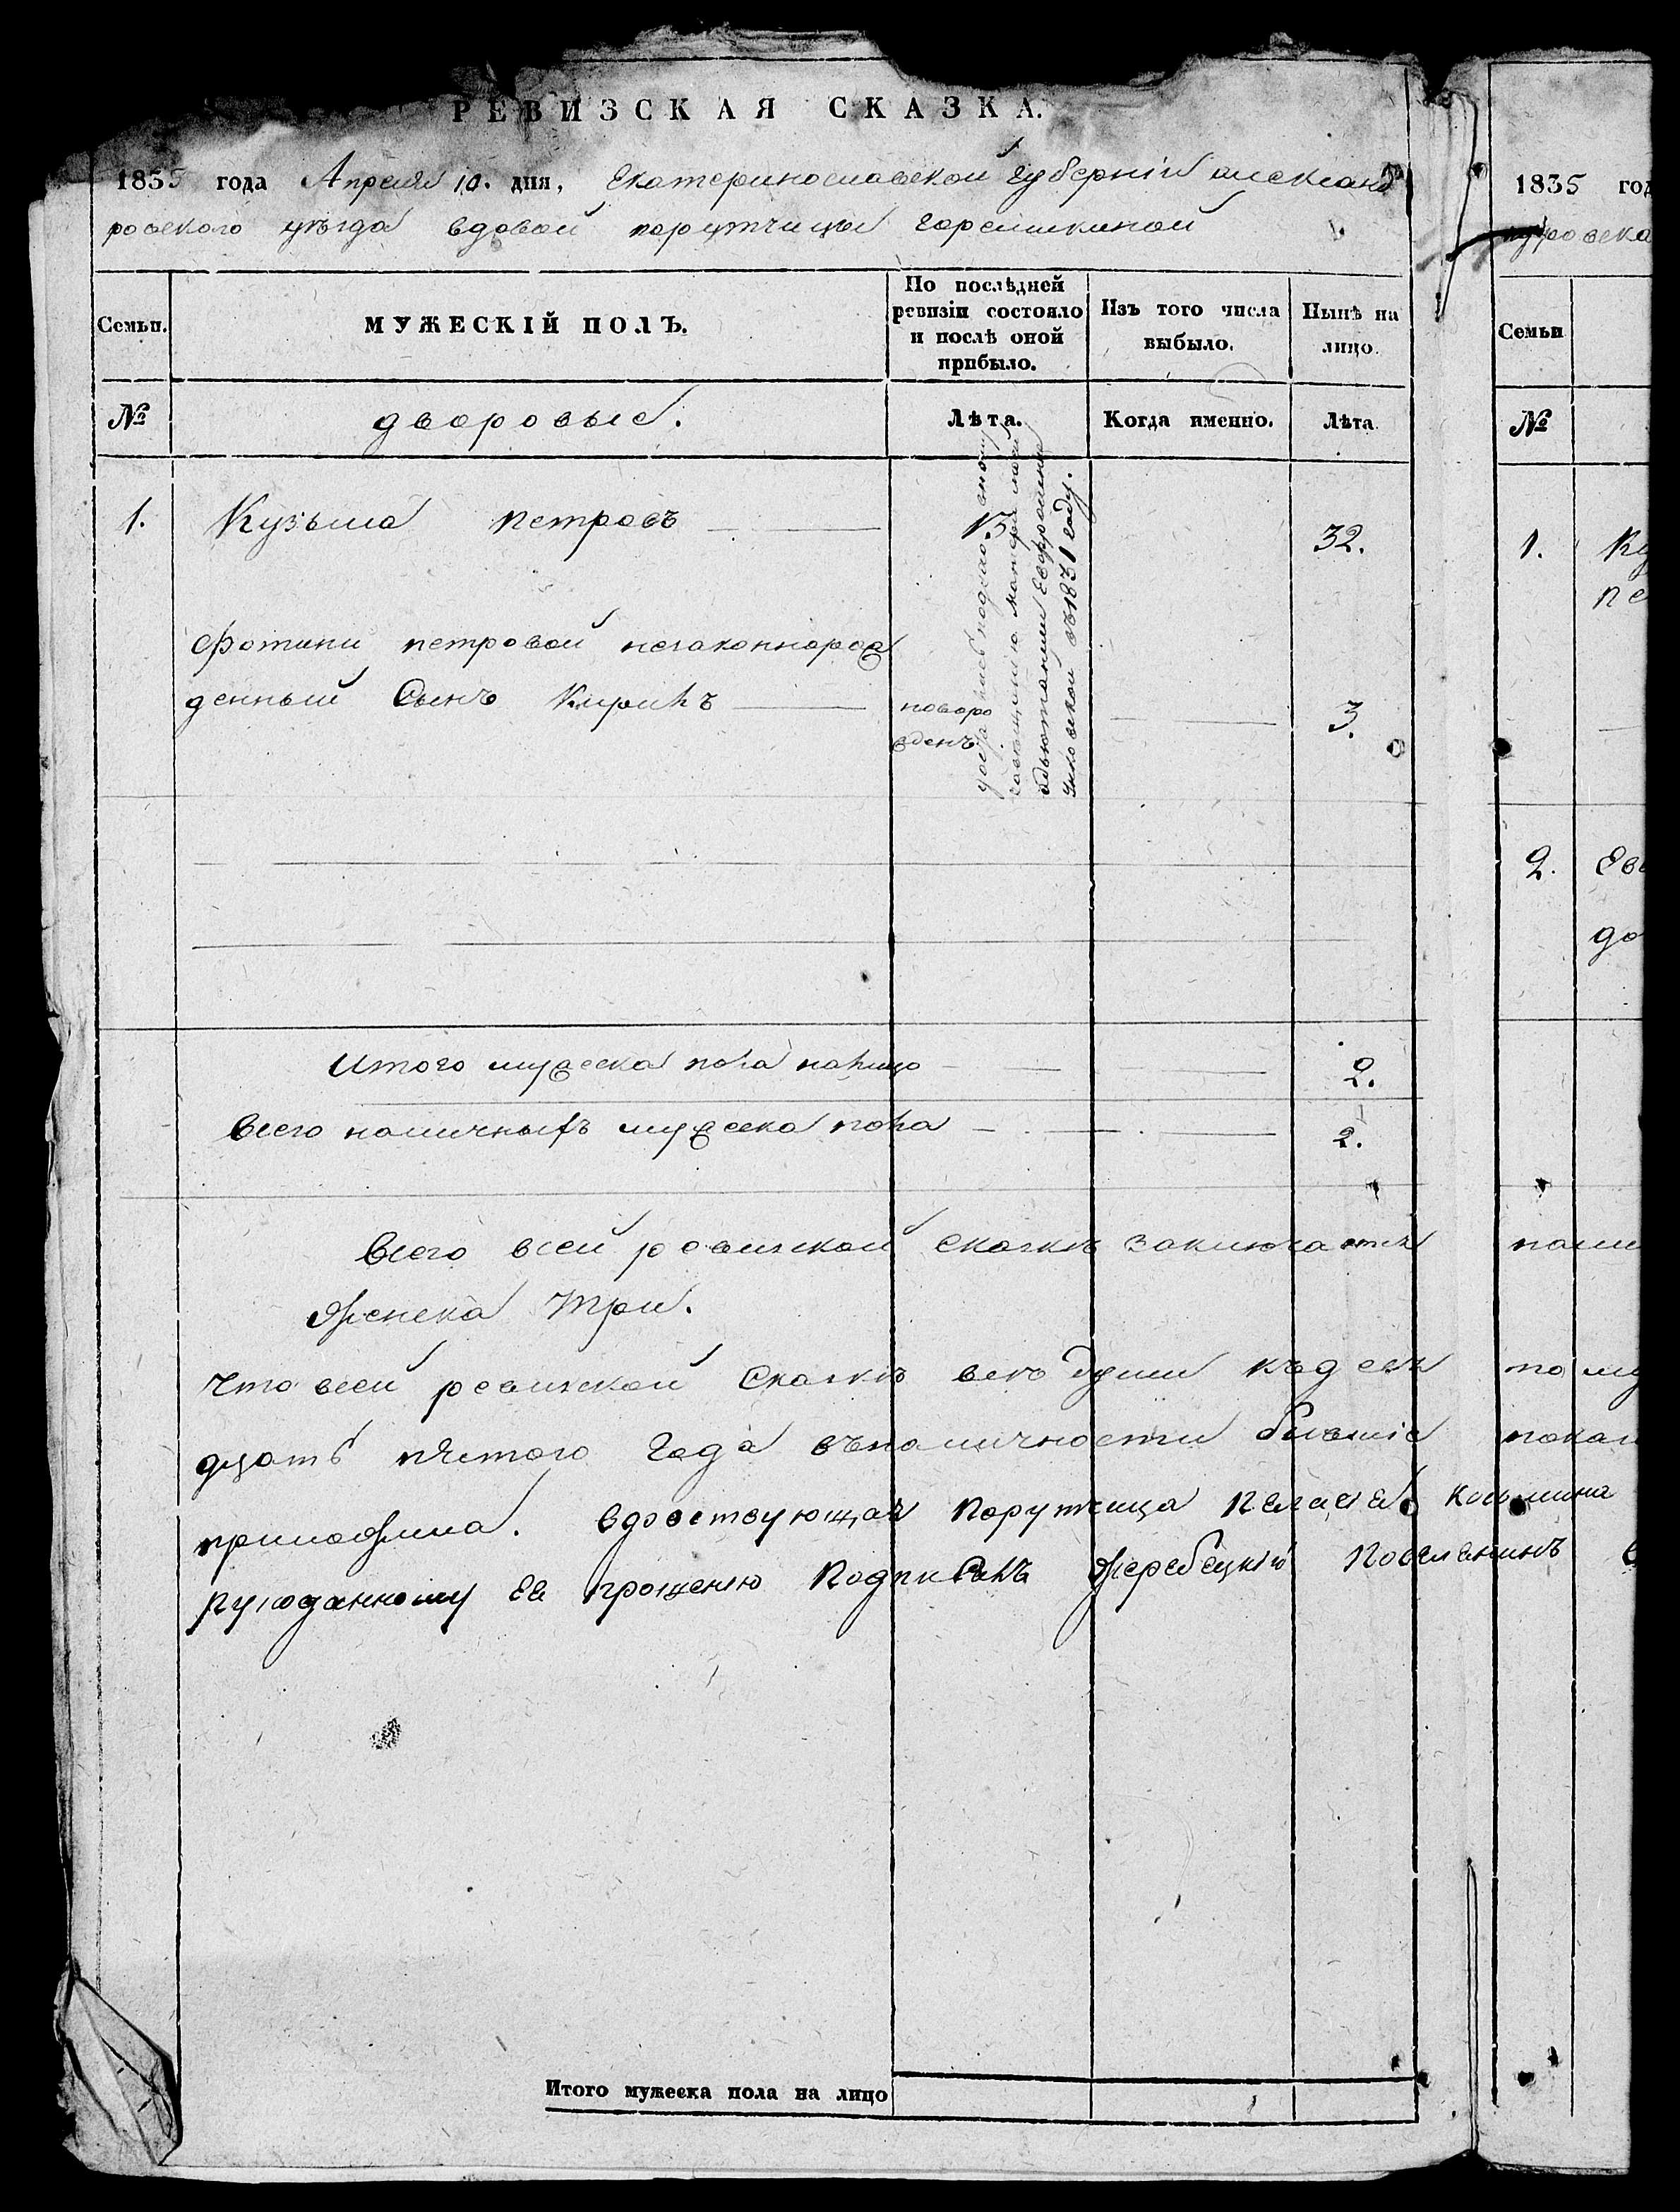 РЕВИЗСКАЯ СКАЗКА.
1835 года Апреля 10. дня, Екатеринославской губерніи александ
ровского уѣзда вдовой порутчицы Горемыкиной
Семьи.
МУЖЕСКІЙ ПОЛЪ.
По послѣдней ревизіи состояло и послѣ оной прибыло.
Изъ того числа выбыло.
Нынѣ на лицо.
№
дворовые.
Лѣта.
Когда именно.
Лѣта.
1. Кузьма петровъ 13. 32.
Фотини петровой незаконнорож
денный Сынъ Кирикъ
новоро
жденъ.
3.
матери моей
въ 1831 году.
Итого мужеска пола налицо 2.
Всего наличныхъ мужеска пола 2.
Всего всей ревизской Сказкѣ заключается
Женска три.
Что всей ревизской Сказкѣ всѣ души
дцать пятого Года въналичности бывшіе
вдовствующая Порутчица Пелагея Косьмина
рукоданному Ее прошенію Подписалъ Жеребецкій Поселянинъ
Итого мужеска пола на лицо
1835 год
Семьи
№
1. Ку
пе
2. Ев
до